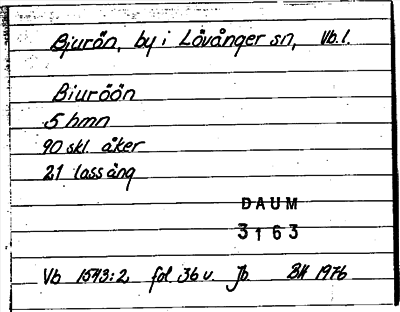 Bjurön, by i Lövånger sn, Vb.l.
Biuröön
5 hmn
90 skl. åker
21 lass äng
DAUM
3163
Vb 1543:2 fol 36 v. Jb. BH 1976